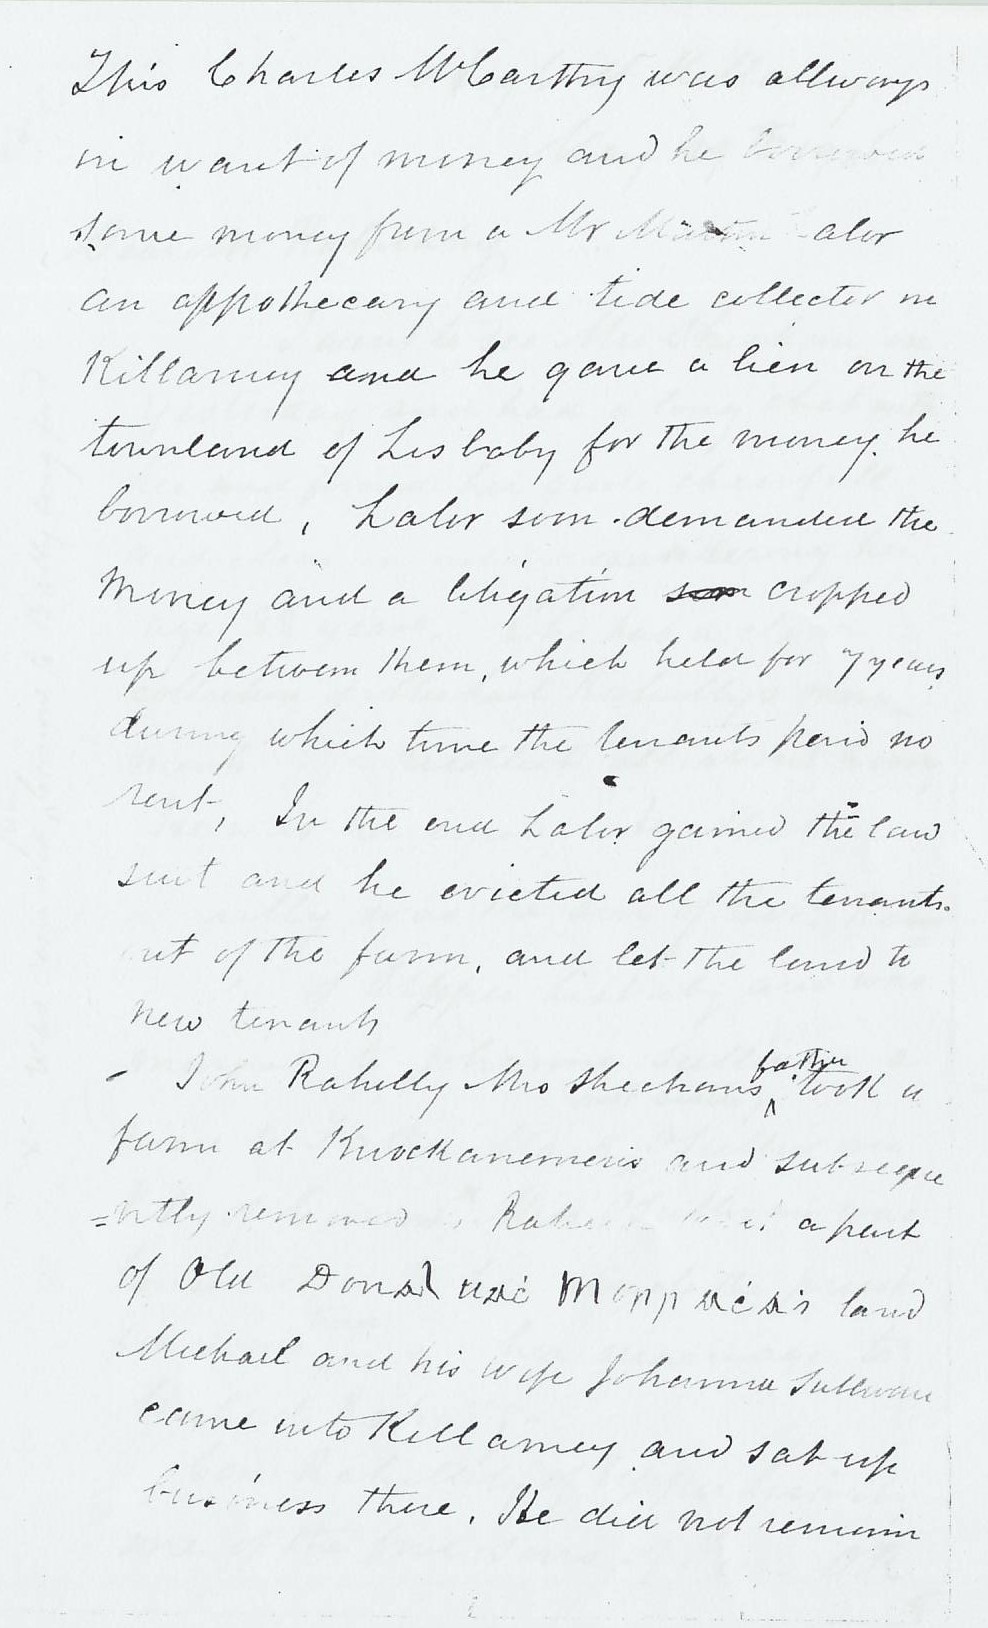 This Charles McCarthy was allways
in want of money and he borrowed
some money from a Mr Martin Lalor
an appothecary and tide collector in
Killarney and he gave a lien on the
townland of Lisbaby for the money he
borrowed, Lalor soon demanded the
money and a litigation cropped
up between them, which held for 7 years
during which time the tenants paid no
rent, In the end Lalor gained the law
suit and he evicted all the tenants.
out of the farm, and let the land to
new tenants
- John Rahilly Mrs Sheehans father took a
farm at Knockanemeris and subseque
=ntly removed a part
of Old land
Michael and his wife Johanna Sullivan
came into Killarney and sat up
business there. He did not remain